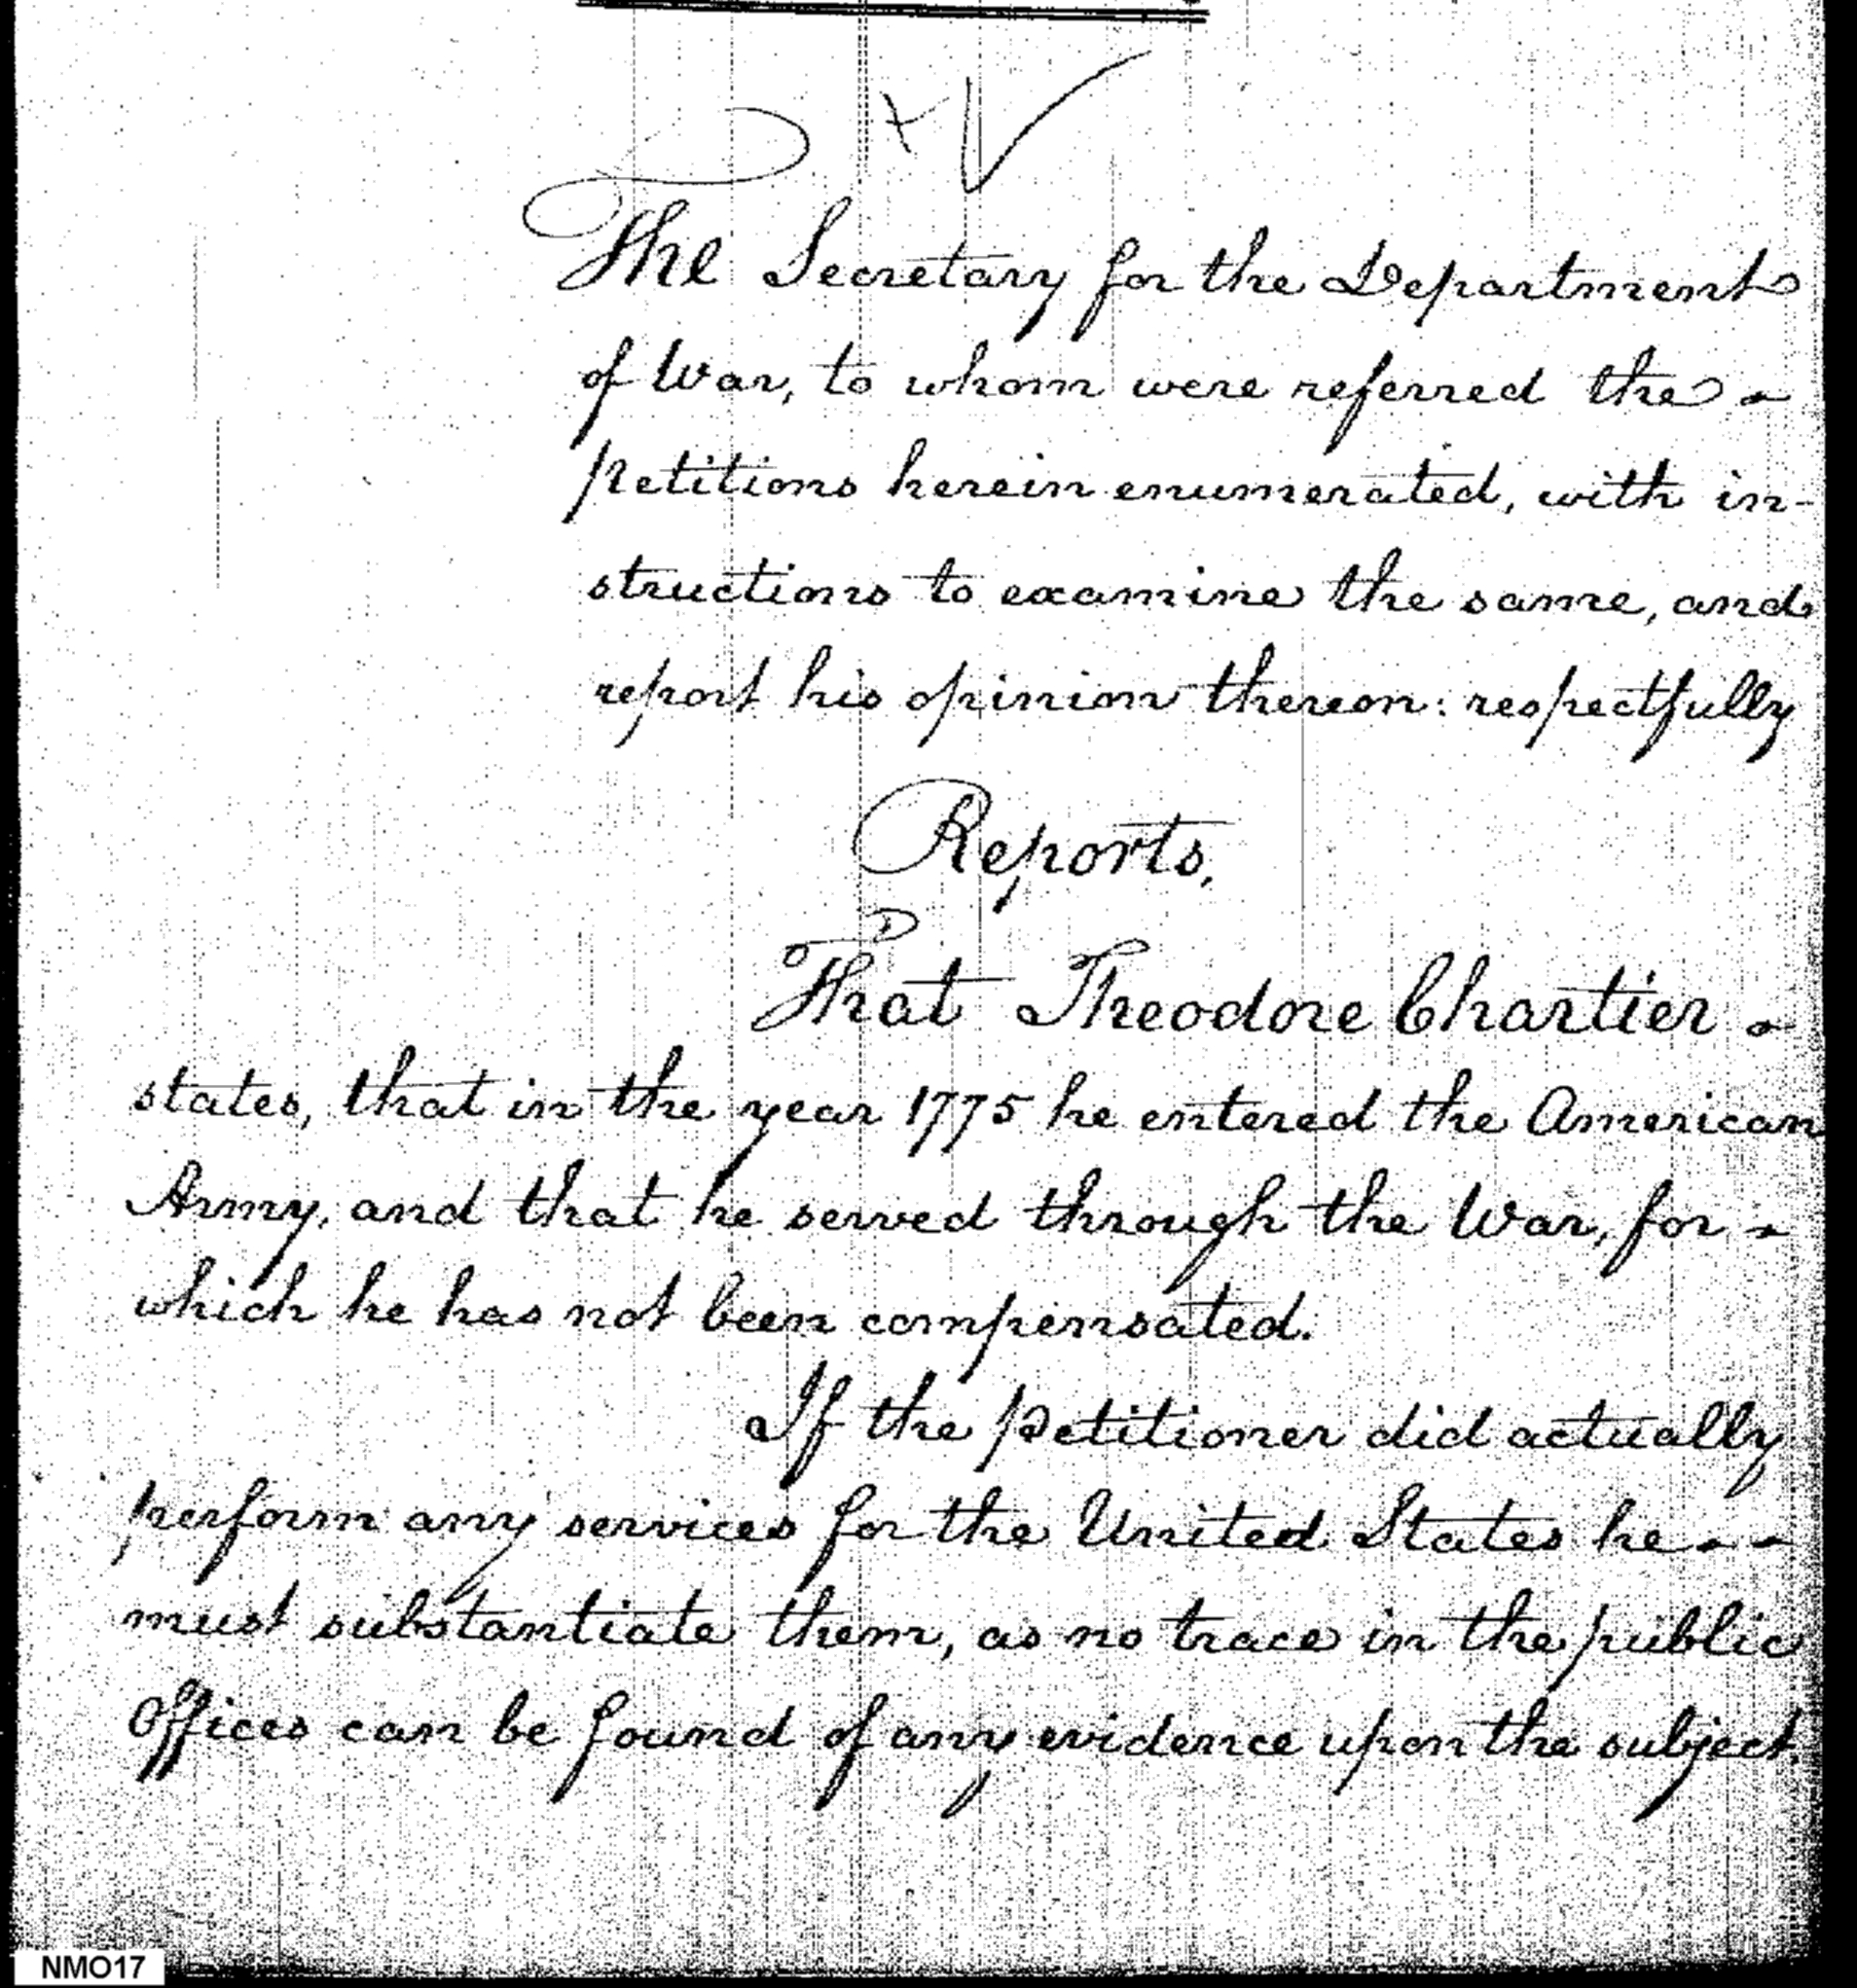 The Secretary for the Department
of War, to whom were referred the
petitions herein enumerated, with in-
structions to examine the same, and
report his opinion thereon: respectfully
Reports,
That Theodore Chartier
states, that in the year 1775 he entered the American
Army, and that he served through the War, for
which he has not been compensated.
If the petitioner did actually
perform any services for the United States he
must substantiate them, as no trace in the public
Offices can be found of any evidence upon the subject.
NMO17